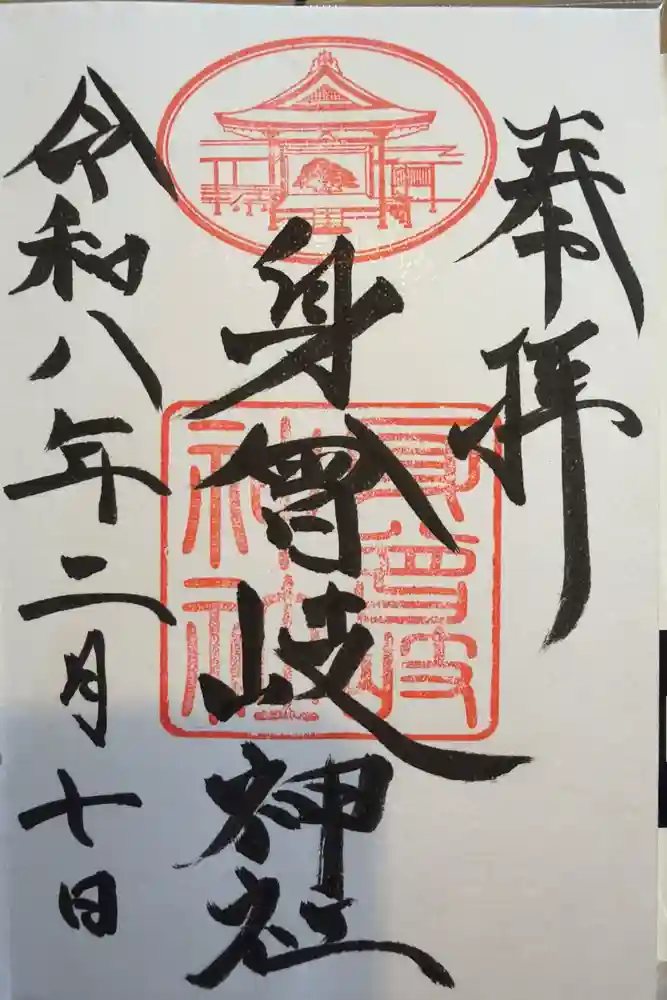 奉拝
身曾岐神社
令和八年二月七日
身曾岐神社